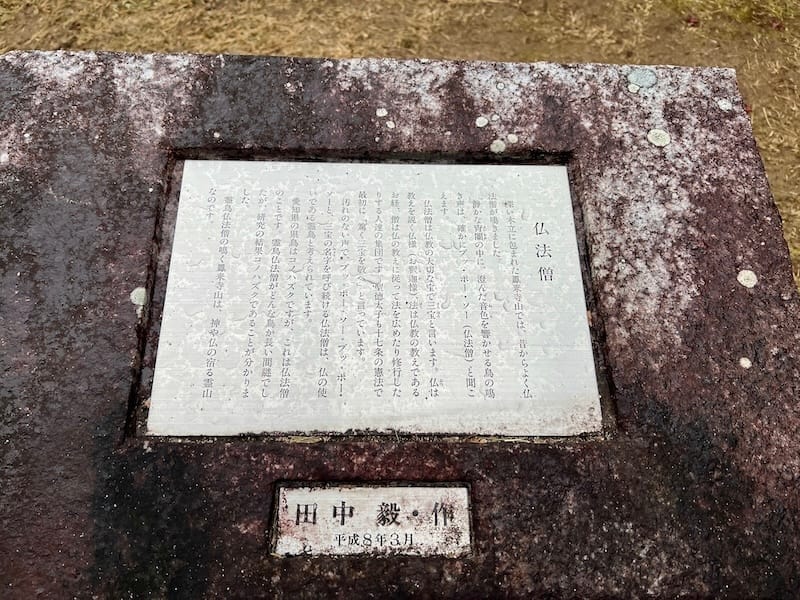 仏法僧
深い木立に包まれた鳳来寺山では、昔からよく仏
法僧が鳴きました。
静かな宵闇の中に、澄んだ音色を響かせる鳥の鳴
き声は、確かにブッ・ポー・ソー（仏法僧）と聞こ
えます。
仏法僧は仏教の大切な宝で三宝と言います。仏は
教えを説く仏様（お釈迦様）法は仏教の教えである
お経、僧は仏の教えに従って法を広めたり修行した
りする人達の集団です。聖徳太子も十七条の憲法で
最初に「篤く三宝を敬へ」と言っています。
汚れのない声で、ブッ・ポー・ソー・ブッ・ポー・
ソーと、三宝の名字を呼び続ける仏法僧は、仏の使
いである霊鳥と考えられています。
愛知県の県鳥はコノハズクですが、これは仏法僧
のことです。霊鳥仏法僧がどんな鳥か長い間謎でし
たが、研究の結果コノハズクであることが分かりま
した。
霊鳥仏法僧の鳴く鳳来寺山は、神や仏の宿る霊山
なのです。
田中 毅・作
平成8年3月